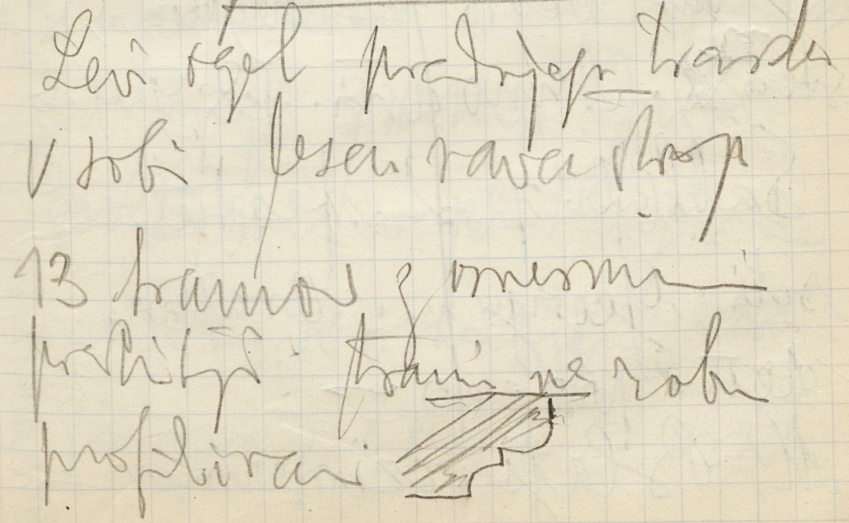 Levi ogel prednjega trakta
v sobi lesen raven strop
13 tramov z
trami na robu
profilirani